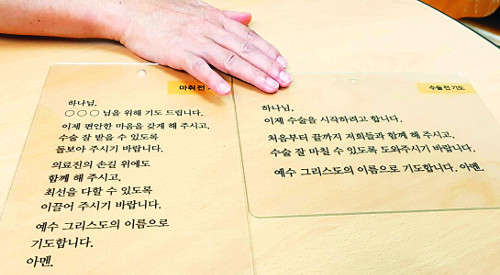 마취 전
하나님,
○○○ 님을 위해 기도 드립니다.
이제 편안한 마음을 갖게 해 주시고,
수술 잘 받을 수 있도록
돌보아 주시기 바랍니다.
의료진의 손길 위에도
함께 해 주시고,
최선을 다할 수 있도록
이끌어 주시기 바랍니다.
예수 그리스도의 이름으로
기도합니다.
아멘.
수술 전 기도
하나님,
이제 수술을 시작하려고 합니다.
처음부터 끝까지 저희들과 함께 해 주시고,
수술 잘 마칠 수 있도록 도와주시기 바랍니다.
예수 그리스도의 이름으로 기도합니다. 아멘.